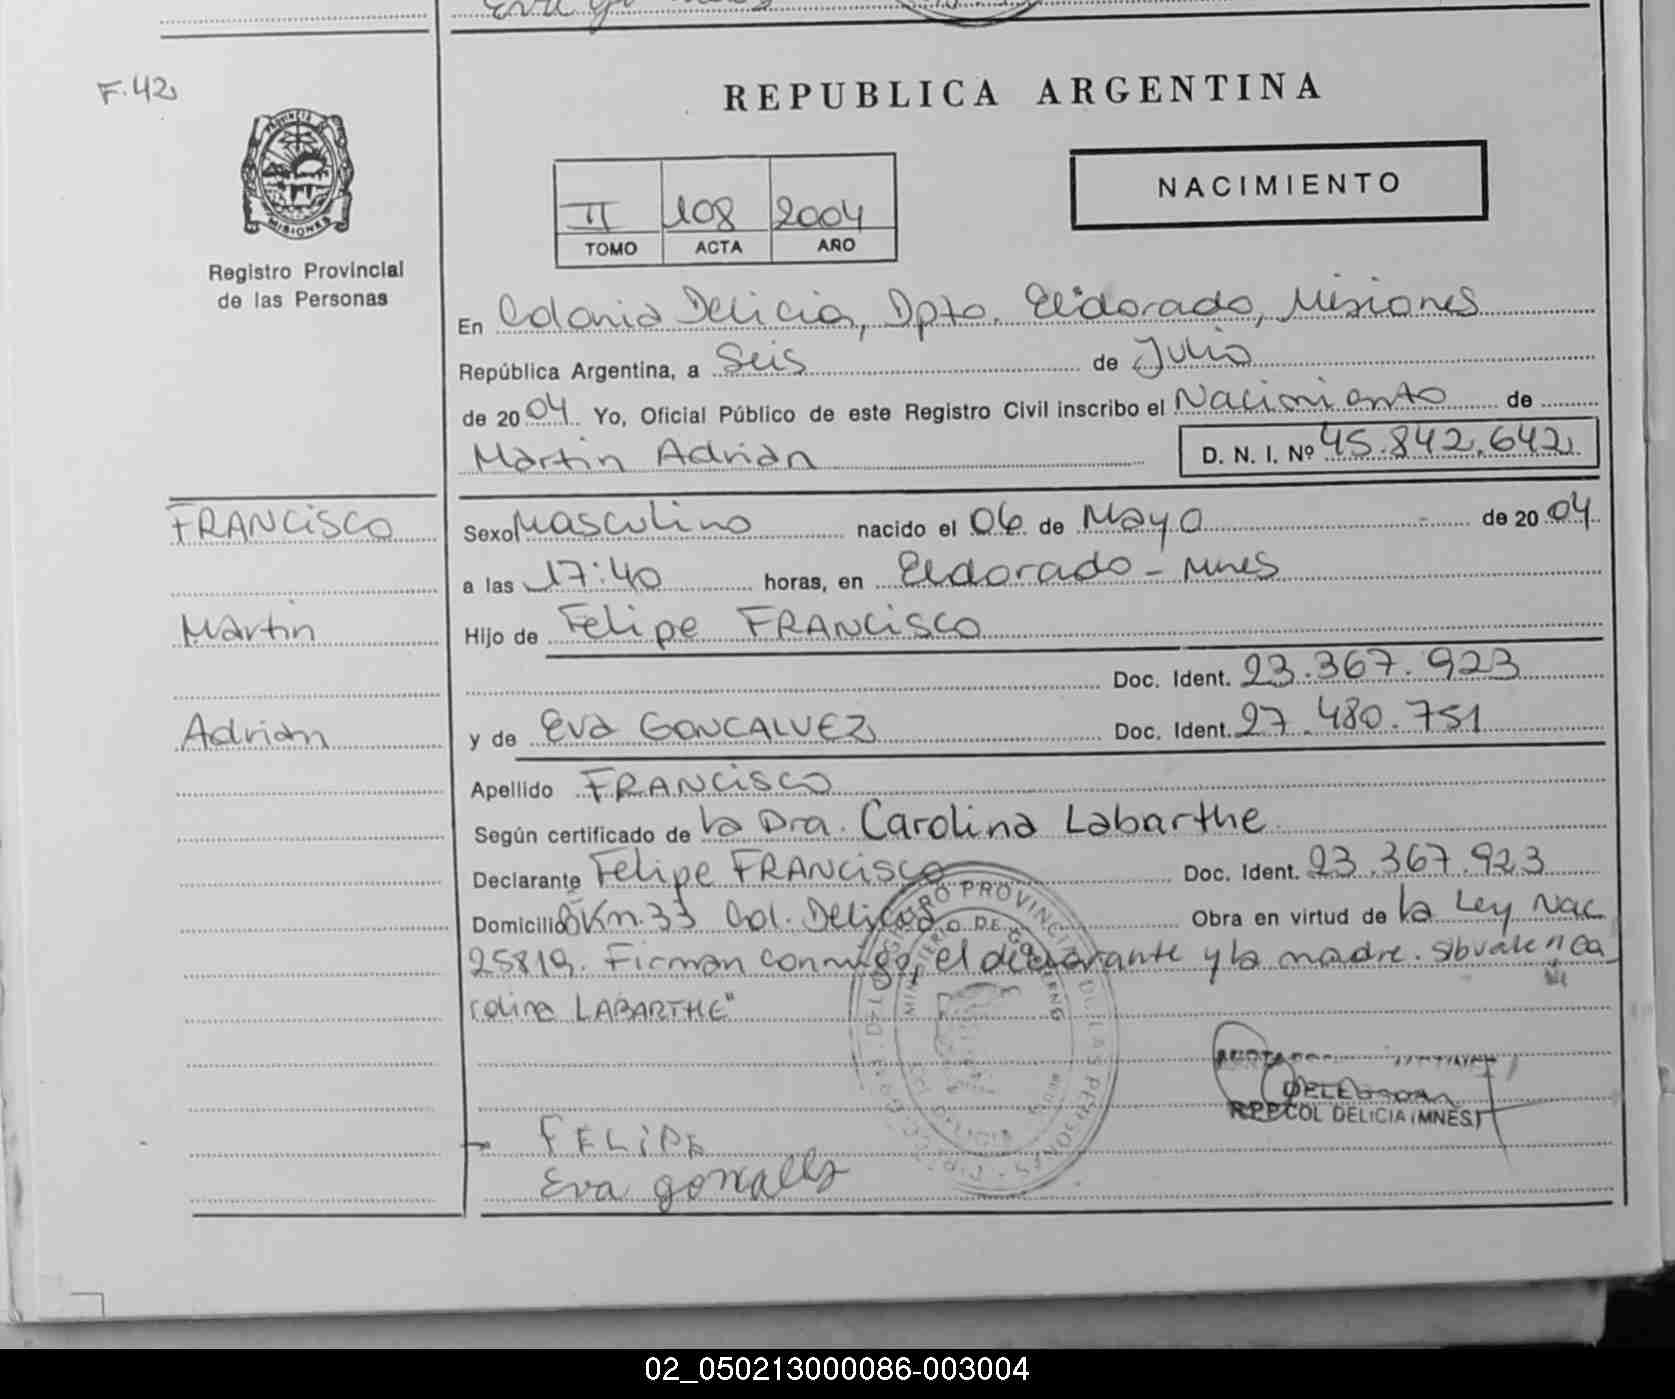 F.42
REPUBLICA ARGENTINA
PROVINCIA DE MISIONES
NACIMIENTO
II 108 2004
TOMO ACTA AÑO
Registro Provincial
de las Personas
En Colonia Delicia, Dpto. Eldorado, Misiones
República Argentina, a Seis de Julio
de 2004 Yo, Oficial Público de este Registro Civil inscribo el Nacimiento de
Martin Adrian D. N. I. Nº 45.842.642
FRANCISCO
Martin
Adrian
Sexo Masculino nacido el 06 de Mayo de 2004
a las 17:40 horas, en Eldorado - Mnes
Hijo de Felipe FRANCISCO
Doc. Ident. 23.367.923
y de Eva GONCALVEZ Doc. Ident. 27.480.751
Apellido FRANCISCO
Según certificado de la Dra. Carolina Labarthe
Declarante Felipe FRANCISCO Doc. Ident. 23.367.923
Domicilio Km.33 Col. Delicia Obra en virtud de la Ley Nac
25819. Firman conmigo, el declarante y la madre. S/b vale "Ca
rolina LABARTHE"
DELEGADA
COL DELICIA (MNES)
FELIPE
Eva gonzalez
02_050213000086-003004